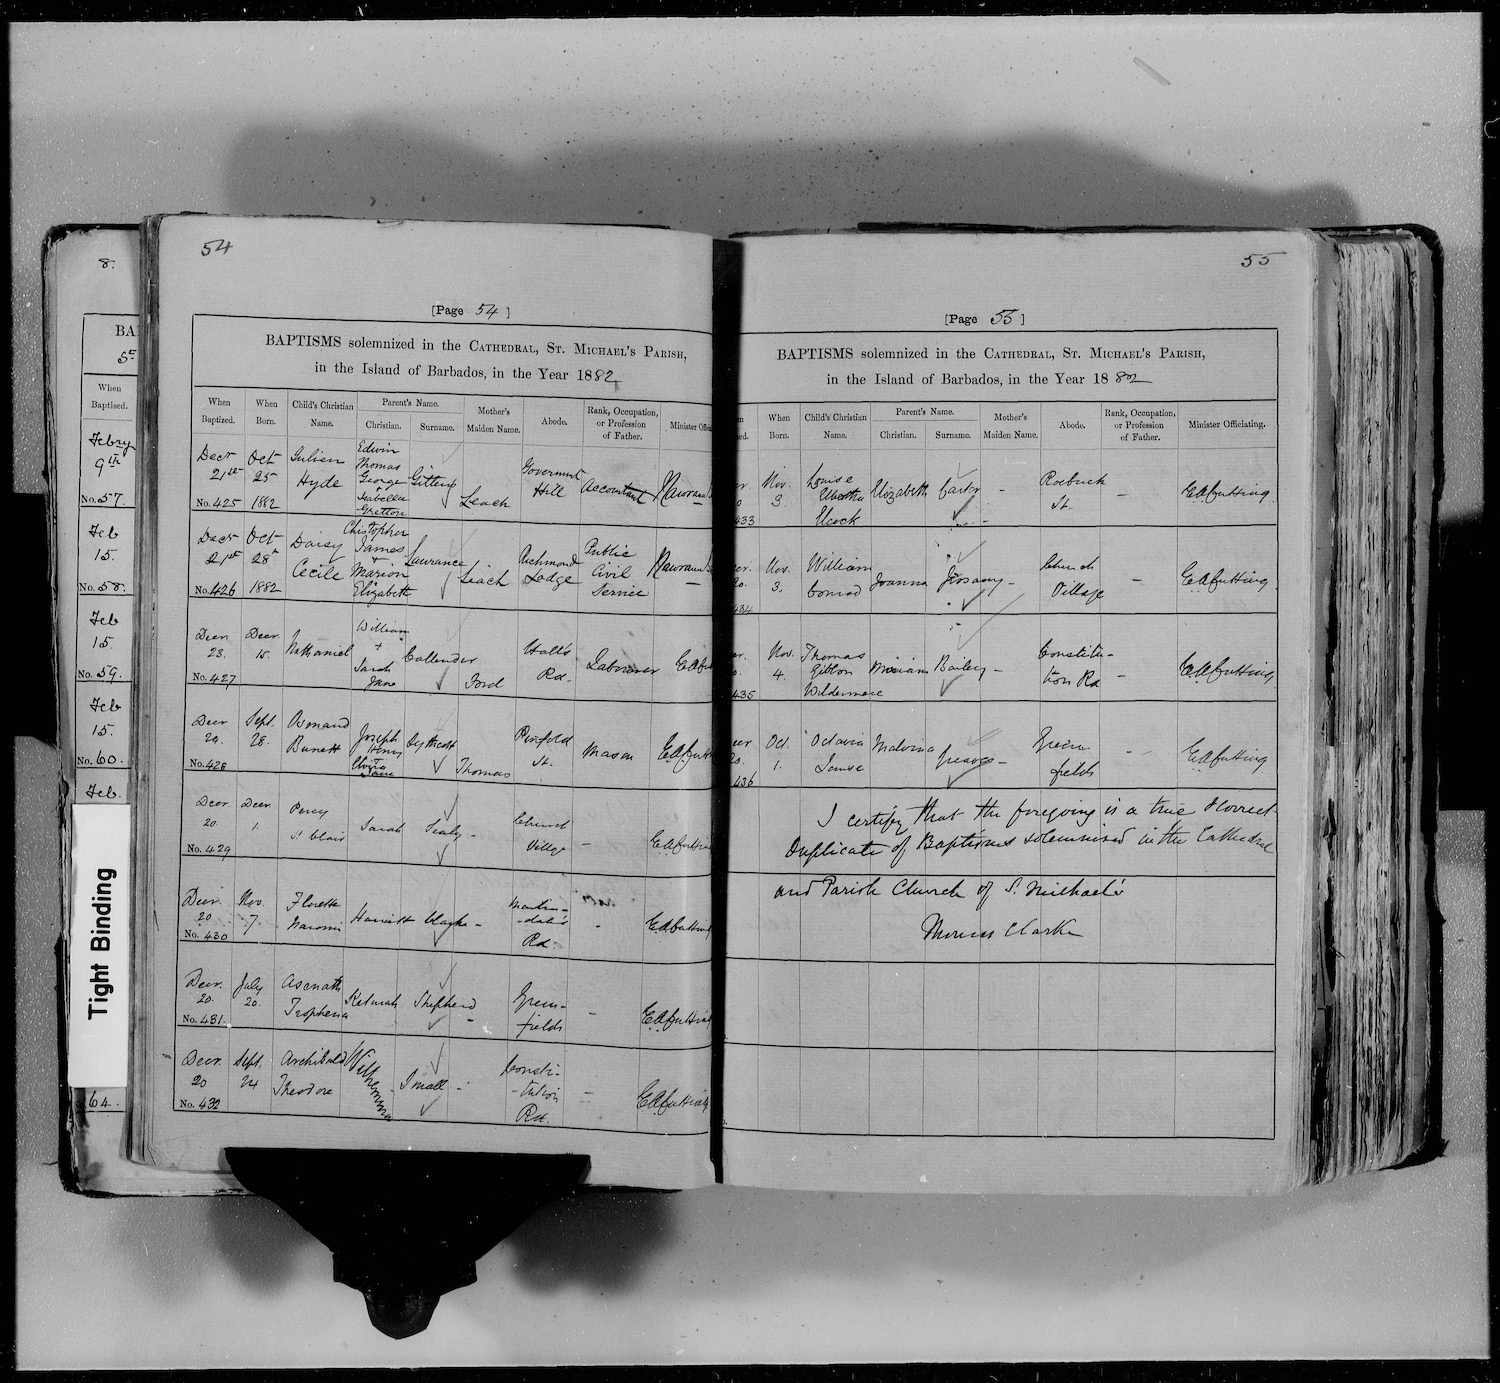 8.
BA
When
Baptised.
Febry
9th
No. 57.
Feb
15.
No. 58.
Feb
15.
No. 59.
Feb
15.
No. 60.
Feb.
64.
Tight Binding
54
[Page 54 ]
BAPTISMS solemnized in the CATHEDRAL, ST. MICHAEL'S PARISH,
in the Island of Barbados, in the Year 1882
When Baptized. When Born. Child's Christian Name. Parent's Name. Christian. Surname. Mother's Maiden Name. Abode. Rank, Occupation, or Profession of Father. Minister Offici
Decr 21st No. 425 Oct 25 1882 Julien Hyde Edwin Thomas George + Isabella Gretton Gittens Leach Goverment Hill Accountant
Decr 21st No. 426 Oct 28th 1882 Daisy Cecile Chistopher James + Marion Elizabeth Lawrance Leach Richmond Lodge Public Civil Service
Decr 23. No. 427 Decr 15. Nathaniel William + Sarah Jane Callender Ford Hall's Rd. Labourer
Decr 20. No. 428 Sept. 28. Osmand Burnett Joseph Henry Jane Thomas Pinfold St. Mason
Decr 20. No. 429 Decr 1. Percy St. Clair Sarah Sealy - Church Village -
Decr. 20 No. 430 Nov. 7. Floretta Naromi Harriett Clarke - Martindale's Rd. -
Decr. 20. No. 431. July 20. Asenath Tryphena Keturah Shepherd - Greenfields -
Decr. 20 No. 432 Sept. 24 Archibald Theodore Wilhemina Small - Consti-tution Rd. -
55
[Page 55 ]
BAPTISMS solemnized in the CATHEDRAL, ST. MICHAEL'S PARISH,
in the Island of Barbados, in the Year 1882
When Born. Child's Christian Name. Parent's Name. Christian. Surname. Mother's Maiden Name. Abode. Rank, Occupation, or Profession of Father. Minister Officiating.
433 Nov. 3. Louise Elcock Elizabeth Carter - Roebuck St. - E A Cutting
434 Nov. 3. William Conrad Joanna - Church Village - E A Cutting
435 Nov. 4. Thomas Gibbon Wildermere Miriam Bailey - Constitu-tion Rd - E A Cutting
436 Oct. 1. Octavia Louise Malvina Greaves - Green fields - E A Cutting
I certify that the foregoing is a true & correct
Duplicate of Baptisms solemnized in the Cathedral
and Parish Church of S. Michael's
Thomas Clarke